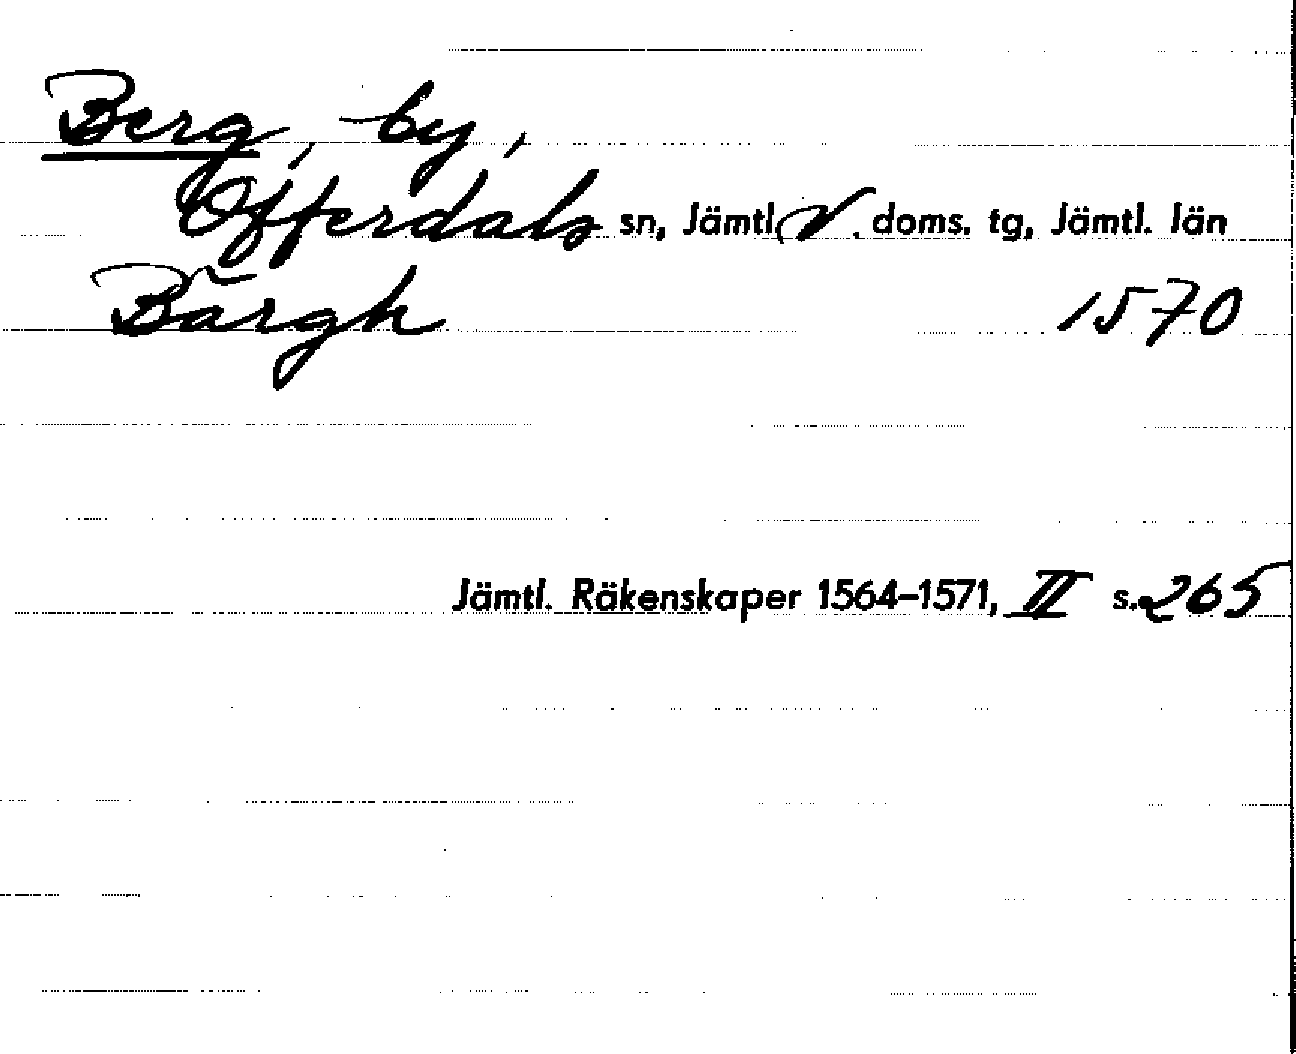 Berg, by,
Offerdals sn, Jämtl. V. doms. tg, Jämtl. län
Bärgh 1570
Jämtl. Räkenskaper 1564–1571, II s. 265